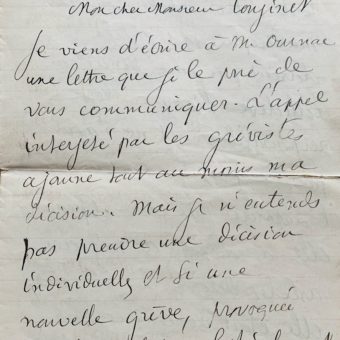 Mon cher Monsieur
Je viens d'écrire à M. Ournac
une lettre que je le prie de
vous communiquer. L'appel
interjeté par les grévistes
ajourne tout au moins ma
décision. Mais je n'entends
pas prendre une décision
individuelle et si une
nouvelle grève, provoquée